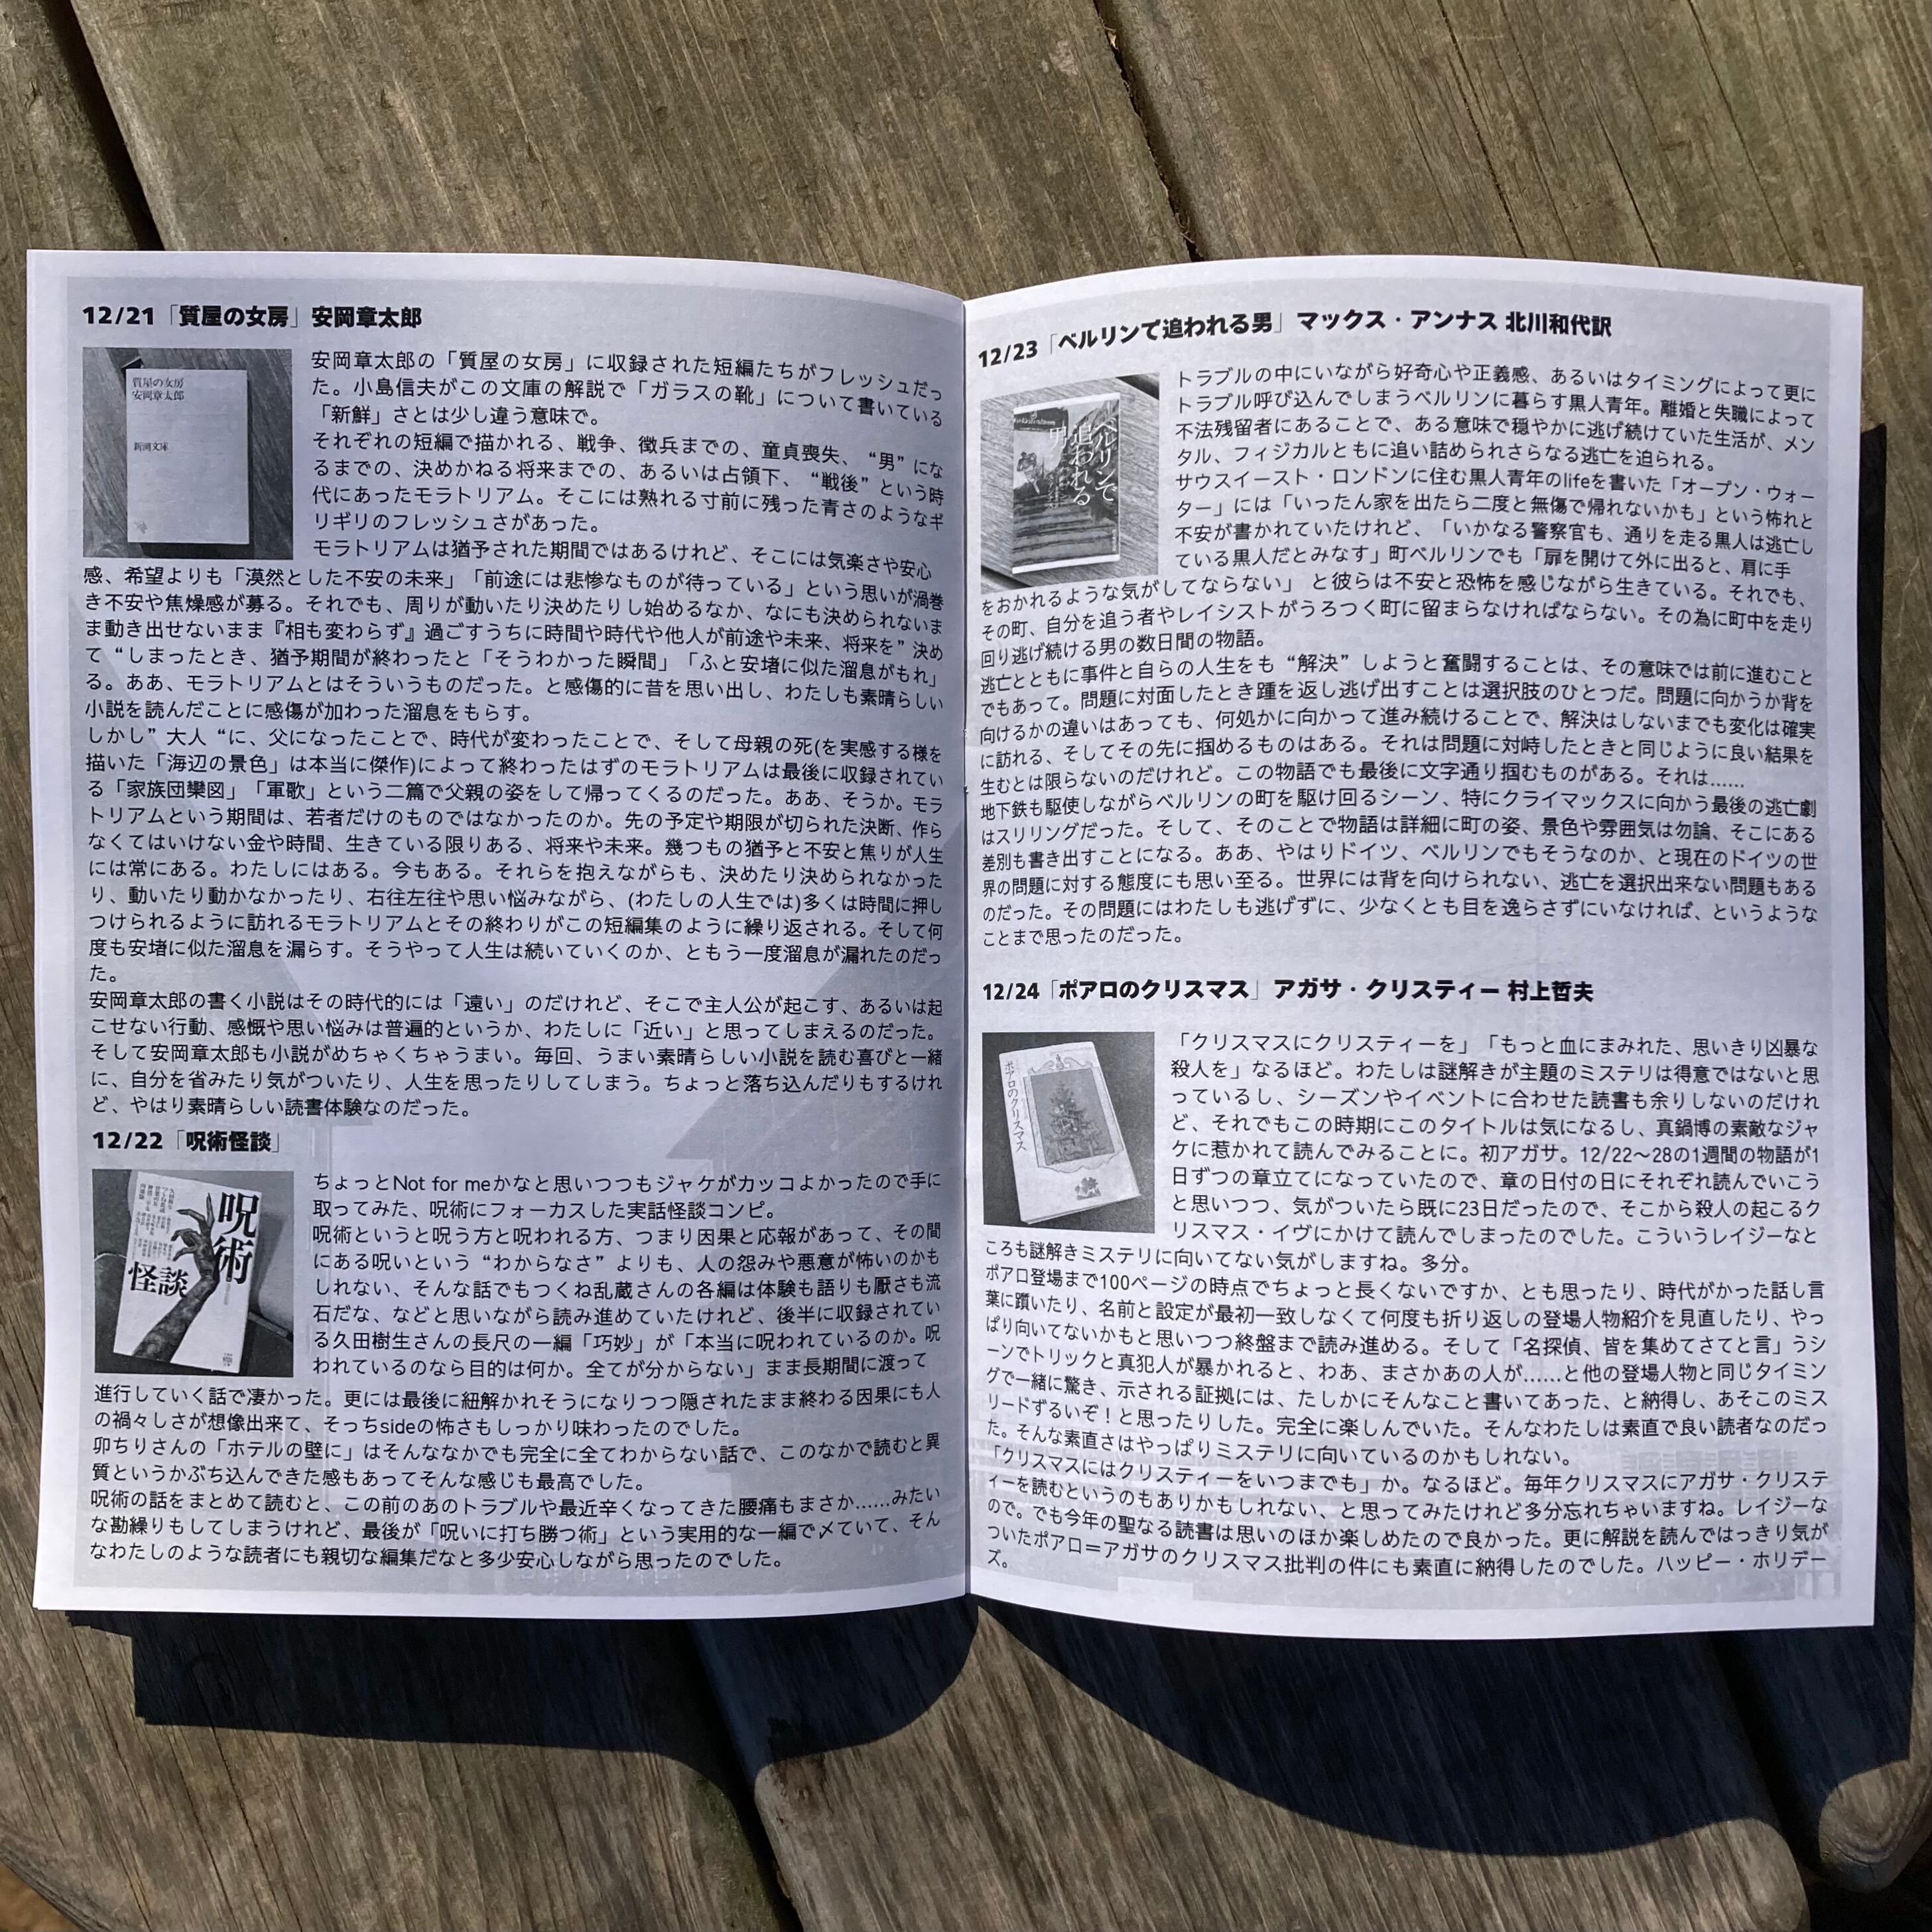 12/21「質屋の女房」安岡章太郎
質屋の女房
安岡章太郎
新潮文庫
安岡章太郎の「質屋の女房」に収録された短編たちがフレッシュだっ
た。小島信夫がこの文庫の解説で「ガラスの靴」について書いている
「新鮮」さとは少し違う意味で。
それぞれの短編で描かれる、戦争、徴兵までの、童貞喪失、“男”にな
るまでの、決めかねる将来までの、あるいは占領下、“戦後”という時
代にあったモラトリアム。そこには熟れる寸前に残った青さのようなギ
リギリのフレッシュさがあった。
モラトリアムは猶予された期間ではあるけれど、そこには気楽さや安心
感、希望よりも「漠然とした不安の未来」「前途には悲惨なものが待っている」という思いが渦巻
き不安や焦燥感が募る。それでも、周りが動いたり決めたりし始めるなか、なにも決められないま
ま動き出せないまま『相も変わらず』過ごすうちに時間や時代や他人が前途や未来、将来を”決め
て“しまったとき、猶予期間が終わったと「そうわかった瞬間」「ふと安堵に似た溜息がもれ」
る。ああ、モラトリアムとはそういうものだった。と感傷的に昔を思い出し、わたしも素晴らしい
小説を読んだことに感傷が加わった溜息をもらす。
しかし”大人“に、父になったことで、時代が変わったことで、そして母親の死(を実感する様を
描いた「海辺の景色」は本当に傑作)によって終わったはずのモラトリアムは最後に収録されてい
る「家族団欒図」「軍歌」という二篇で父親の姿をして帰ってくるのだった。ああ、そうか。モラ
トリアムという期間は、若者だけのものではなかったのか。先の予定や期限が切られた決断、作ら
なくてはいけない金や時間、生きている限りある、将来や未来。幾つもの猶予と不安と焦りが人生
には常にある。わたしにはある。今もある。それらを抱えながらも、決めたり決められなかった
り、動いたり動かなかったり、右往左往や思い悩みながら、(わたしの人生では)多くは時間に押し
つけられるように訪れるモラトリアムとその終わりがこの短編集のように繰り返される。そして何
度も安堵に似た溜息を漏らす。そうやって人生は続いていくのか、ともう一度溜息が漏れたのだっ
た。
安岡章太郎の書く小説はその時代的には「遠い」のだけれど、そこで主人公が起こす、あるいは起
こせない行動、感慨や思い悩みは普遍的というか、わたしに「近い」と思ってしまえるのだった。
そして安岡章太郎も小説がめちゃくちゃうまい。毎回、うまい素晴らしい小説を読む喜びと一緒
に、自分を省みたり気がついたり、人生を思ったりしてしまう。ちょっと落ち込んだりもするけれ
ど、やはり素晴らしい読書体験なのだった。
12/22「呪術怪談」
呪術
怪談
ちょっとNot for meかなと思いつつもジャケがカッコよかったので手に
取ってみた、呪術にフォーカスした実話怪談コンピ。
呪術というと呪う方と呪われる方、つまり因果と応報があって、その間
にある呪いという“わからなさ”よりも、人の怨みや悪意が怖いのかも
しれない、そんな話でもつくね乱蔵さんの各編は体験も語りも厭さも流
石だな、などと思いながら読み進めていたけれど、後半に収録されてい
る久田樹生さんの長尺の一編「巧妙」が「本当に呪われているのか。呪
われているのなら目的は何か。全てが分からない」まま長期間に渡って
進行していく話で凄かった。更には最後に紐解かれそうになりつつ隠されたまま終わる因果にも人
の禍々しさが想像出来て、そっちsideの怖さもしっかり味わったのでした。
卯ちりさんの「ホテルの壁に」はそんななかでも完全に全てわからない話で、このなかで読むと異
質というかぶち込んできた感もあってそんな感じも最高でした。
呪術の話をまとめて読むと、この前のあのトラブルや最近辛くなってきた腰痛もまさか……みたい
な勘繰りもしてしまうけれど、最後が「呪いに打ち勝つ術」という実用的な一編で〆ていて、そん
なわたしのような読者にも親切な編集だなと多少安心しながら思ったのでした。
12/23「ベルリンで追われる男」マックス・アンナス 北川和代訳
ベルリンで
追われる
男
トラブルの中にいながら好奇心や正義感、あるいはタイミングによって更に
トラブル呼び込んでしまうベルリンに暮らす黒人青年。離婚と失職によって
不法残留者にあることで、ある意味で穏やかに逃げ続けていた生活が、メン
タル、フィジカルともに追い詰められさらなる逃亡を迫られる。
サウスイースト・ロンドンに住む黒人青年のlifeを書いた「オープン・ウォー
ター」には「いったん家を出たら二度と無傷で帰れないかも」という怖れと
不安が書かれていたけれど、「いかなる警察官も、通りを走る黒人は逃亡し
ている黒人だとみなす」町ベルリンでも「扉を開けて外に出ると、肩に手
をおかれるような気がしてならない」 と彼らは不安と恐怖を感じながら生きている。それでも、
その町、自分を追う者やレイシストがうろつく町に留まらなければならない。その為に町中を走り
回り逃げ続ける男の数日間の物語。
逃亡とともに事件と自らの人生をも“解決”しようと奮闘することは、その意味では前に進むこと
でもあって。問題に対面したとき踵を返し逃げ出すことは選択肢のひとつだ。問題に向かうか背を
向けるかの違いはあっても、何処かに向かって進み続けることで、解決はしないまでも変化は確実
に訪れる、そしてその先に掴めるものはある。それは問題に対峙したときと同じように良い結果を
生むとは限らないのだけれど。この物語でも最後に文字通り掴むものがある。それは……
地下鉄も駆使しながらベルリンの町を駆け回るシーン、特にクライマックスに向かう最後の逃亡劇
はスリリングだった。そして、そのことで物語は詳細に町の姿、景色や雰囲気は勿論、そこにある
差別も書き出すことになる。ああ、やはりドイツ、ベルリンでもそうなのか、と現在のドイツの世
界の問題に対する態度にも思い至る。世界には背を向けられない、逃亡を選択出来ない問題もある
のだった。その問題にはわたしも逃げずに、少なくとも目を逸らさずにいなければ、というような
ことまで思ったのだった。
12/24「ポアロのクリスマス」アガサ・クリスティー 村上哲夫
ポアロのクリスマス
「クリスマスにクリスティーを」「もっと血にまみれた、思いきり凶暴な
殺人を」なるほど。わたしは謎解きが主題のミステリは得意ではないと思
っているし、シーズンやイベントに合わせた読書も余りしないのだけれ
ど、それでもこの時期にこのタイトルは気になるし、真鍋博の素敵なジャ
ケに惹かれて読んでみることに。初アガサ。12/22〜28の1週間の物語が1
日ずつの章立てになっていたので、章の日付の日にそれぞれ読んでいこう
と思いつつ、気がついたら既に23日だったので、そこから殺人の起こるク
リスマス・イヴにかけて読んでしまったのでした。こういうレイジーなと
ころも謎解きミステリに向いてない気がしますね。多分。
ポアロ登場まで100ページの時点でちょっと長くないですか、とも思ったり、時代がかった話し言
葉に躓いたり、名前と設定が最初一致しなくて何度も折り返しの登場人物紹介を見直したり、やっ
ぱり向いてないかもと思いつつ終盤まで読み進める。そして「名探偵、皆を集めてさてと言」うシ
ーンでトリックと真犯人が暴かれると、わあ、まさかあの人が……と他の登場人物と同じタイミン
グで一緒に驚き、示される証拠には、たしかにそんなこと書いてあった、と納得し、あそこのミス
リードずるいぞ！と思ったりした。完全に楽しんでいた。そんなわたしは素直で良い読者なのだっ
た。そんな素直さはやっぱりミステリに向いているのかもしれない。
「クリスマスにはクリスティーをいつまでも」か。なるほど。毎年クリスマスにアガサ・クリステ
ィーを読むというのもありかもしれない、と思ってみたけれど多分忘れちゃいますね。レイジーな
ので。でも今年の聖なる読書は思いのほか楽しめたので良かった。更に解説を読んではっきり気が
ついたポアロ＝アガサのクリスマス批判の件にも素直に納得したのでした。ハッピー・ホリデー
ズ。